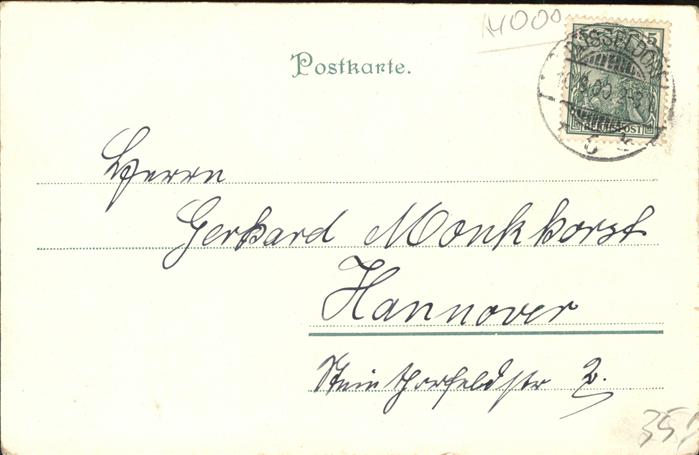 4000
Postkarte.
DÜSSELDORF
5
REICHSPOST
Herrn
Gerhard Monkhorst
Hannover
Steinthorfeldstr 2.
35